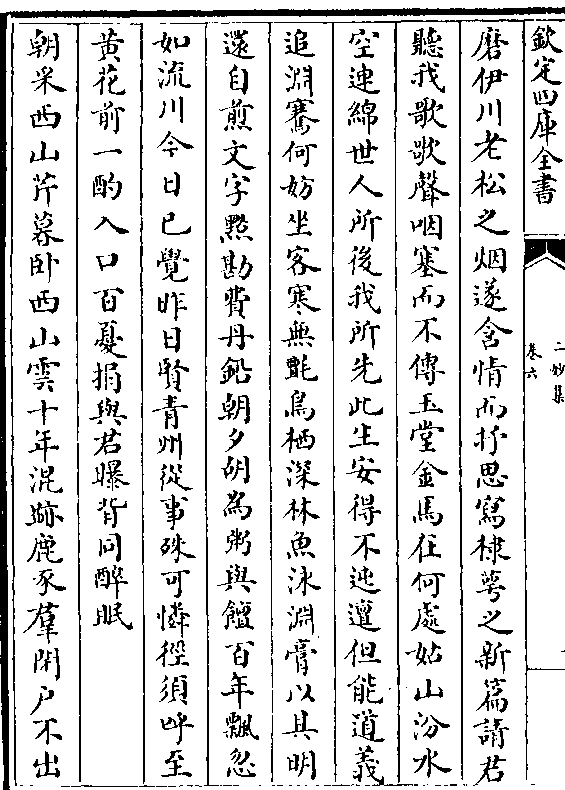 欽定四庫全書
二妙集
卷六
磨伊川老松之烟遂含情而抒思寫棣萼之新篇請君
聽我歌歌聲咽塞而不傳玉堂金馬在何處姑山汾水
空連綿世人所後我所先此生安得不迍邅但能道義
追淵騫何妨坐客寒無氈鳥栖深林魚泳淵膏以其明
還自煎文字點勘費丹鉛朝夕胡為粥與饘百年飄忽
如流川今日已覺昨日賢青州從事殊可憐徑須呼至
黄花前一酌入口百憂捐與君曝背同醉眠
朝采西山芹暮卧西山雲十年混跡鹿豕羣閉户不出